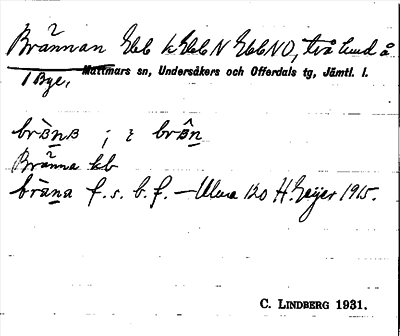 Brännan Ebb k Ebb N Ebb NO, två hund å
Mattmars sn, Undersåkers och Offerdals tg, Jämtl. l.
i Bye,
Bränna kb
bräna f. s. b. f. – Ulma 120 H. Geijer 1915.
C. LINDBERG 1931.